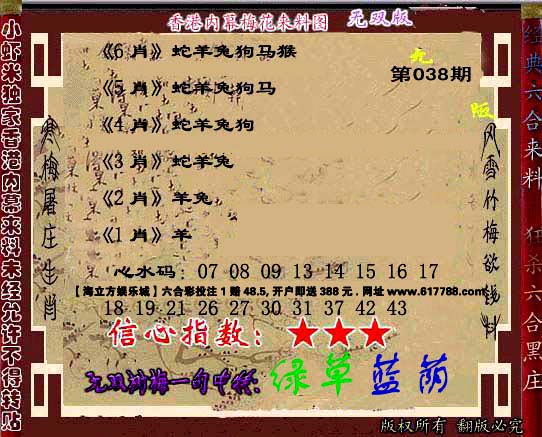 香港内幕梅花来料图 无双版
《6 肖》 蛇羊兔狗马猴
第038期
《5 肖》 蛇羊兔狗马
《4 肖》 蛇羊兔狗
《3 肖》 蛇羊兔
《2 肖》 羊兔
《1 肖》 羊
心水码: 07 08 09 13 14 15 16 17
【海立方娱乐城】六合彩投注 1 赔 48.5, 开户即送 388 元 . 网址 www.617788.com
18 19 21 26 27 29 30 31 37 42 43
信心指数: ★★★
无双浏梅一句中特: 绿草蓝荫
版权所有 翻版必究
小虾米独家香港内幕来料未经允许不得转贴
寒梅屠庄生肖
风雪竹梅欲钱料
无
版
经典六合来料
狂杀六合黑庄